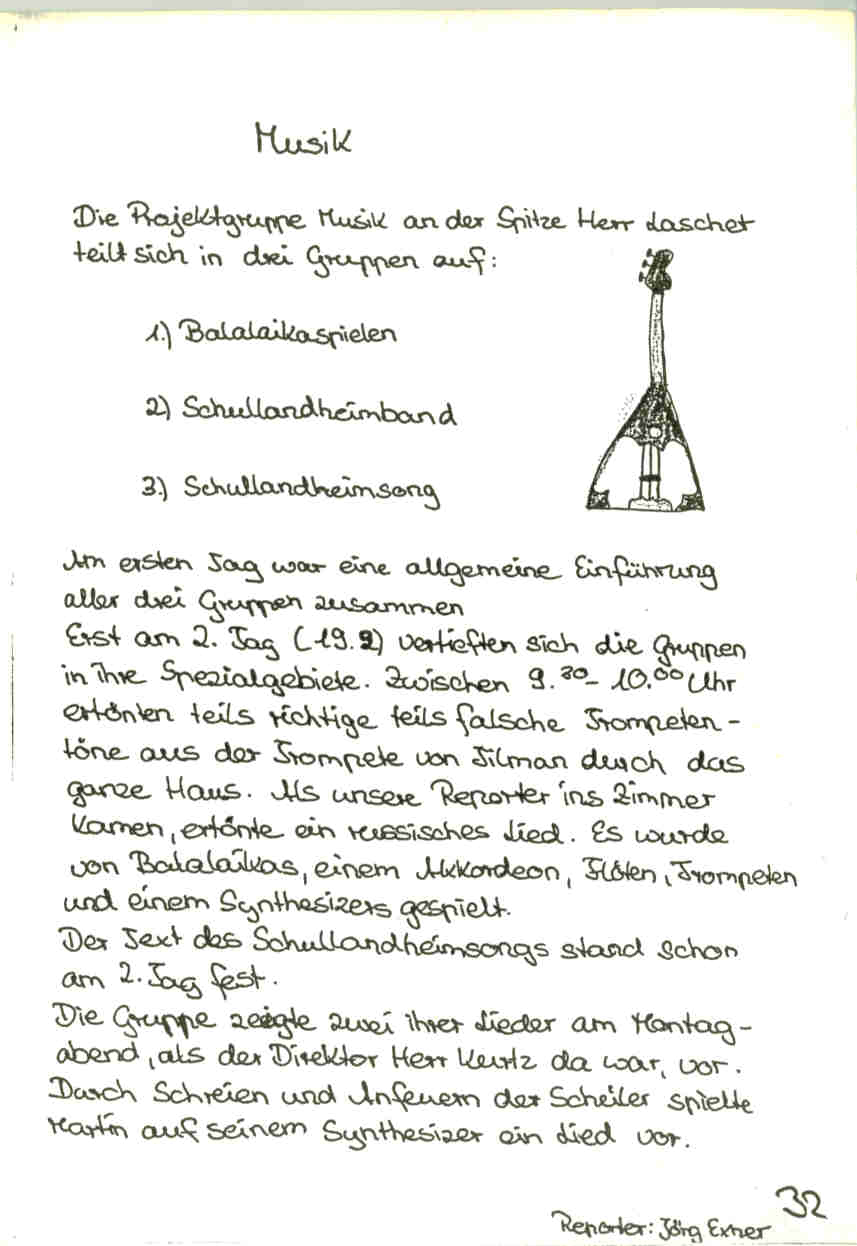 Musik
Die Projektgruppe Musik an der Spitze Herr Laschet
teilt sich in drei Gruppen auf:
1.) Balalaikaspielen
2) Schullandheimband
3.) Schullandheimsong
Am ersten Tag war eine allgemeine Einführung
aller drei Gruppen zusammen
Erst am 2. Tag (19.9) vertieften sich die Gruppen
in ihre Spezialgebiete. Zwischen 9.30 - 10.00 Uhr
ertönten teils richtige teils falsche Trompeten-
töne aus der Trompete von Tilman durch das
ganze Haus. Als unsere Reporter ins Zimmer
kamen, ertönte ein russisches Lied. Es wurde
von Balalaikas, einem Akkordeon, Flöten, Trompeten
und einem Synthesizers gespielt.
Der Text des Schullandheimsongs stand schon
am 2. Tag fest.
Die Gruppe zeigte zwei ihrer Lieder am Montag-
abend, als der Direktor Herr Kurtz da war, vor.
Durch Schreien und Anfeuern der Schüler spielte
Martin auf seinem Synthesizer ein Lied vor.
32
Reporter: Jörg Exner